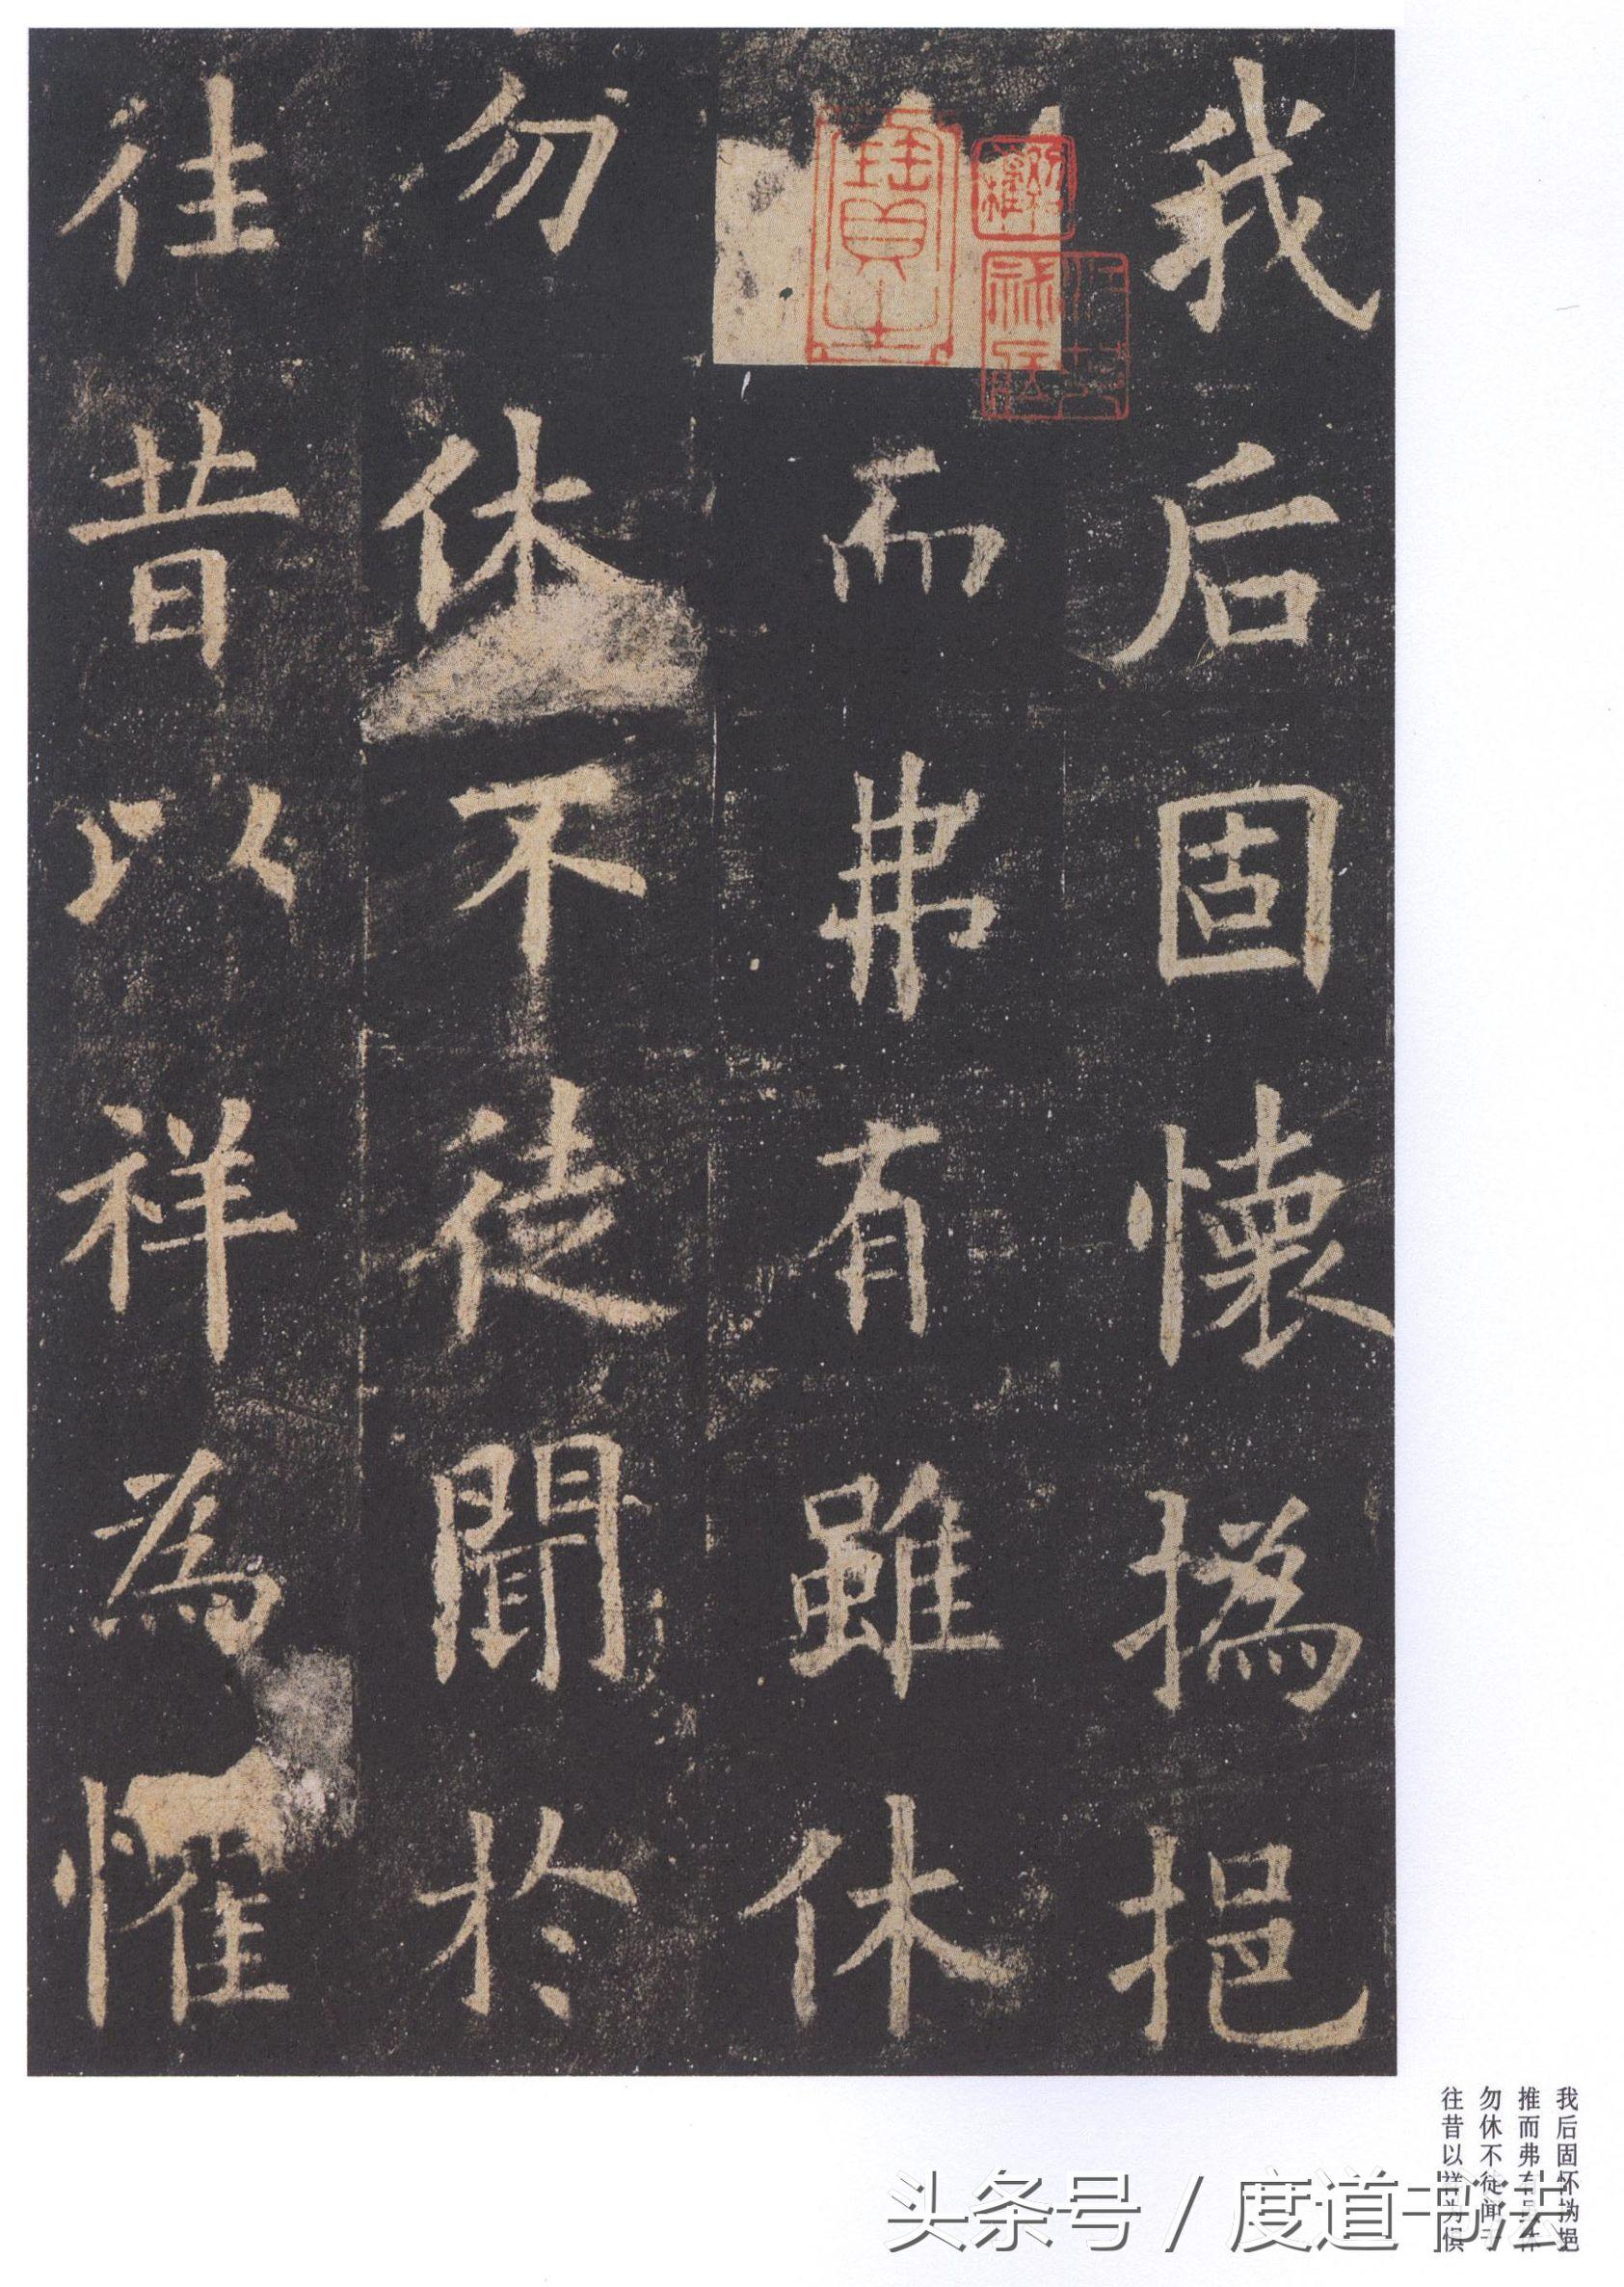 我后固懷撝挹
而弗有雖休
勿休不徒聞於
往昔以祥為懼
寶
我后固怀㧑挹
推而弗有虽休
勿休不徒闻于
往昔以祥为惧
头条号 / 度道书法